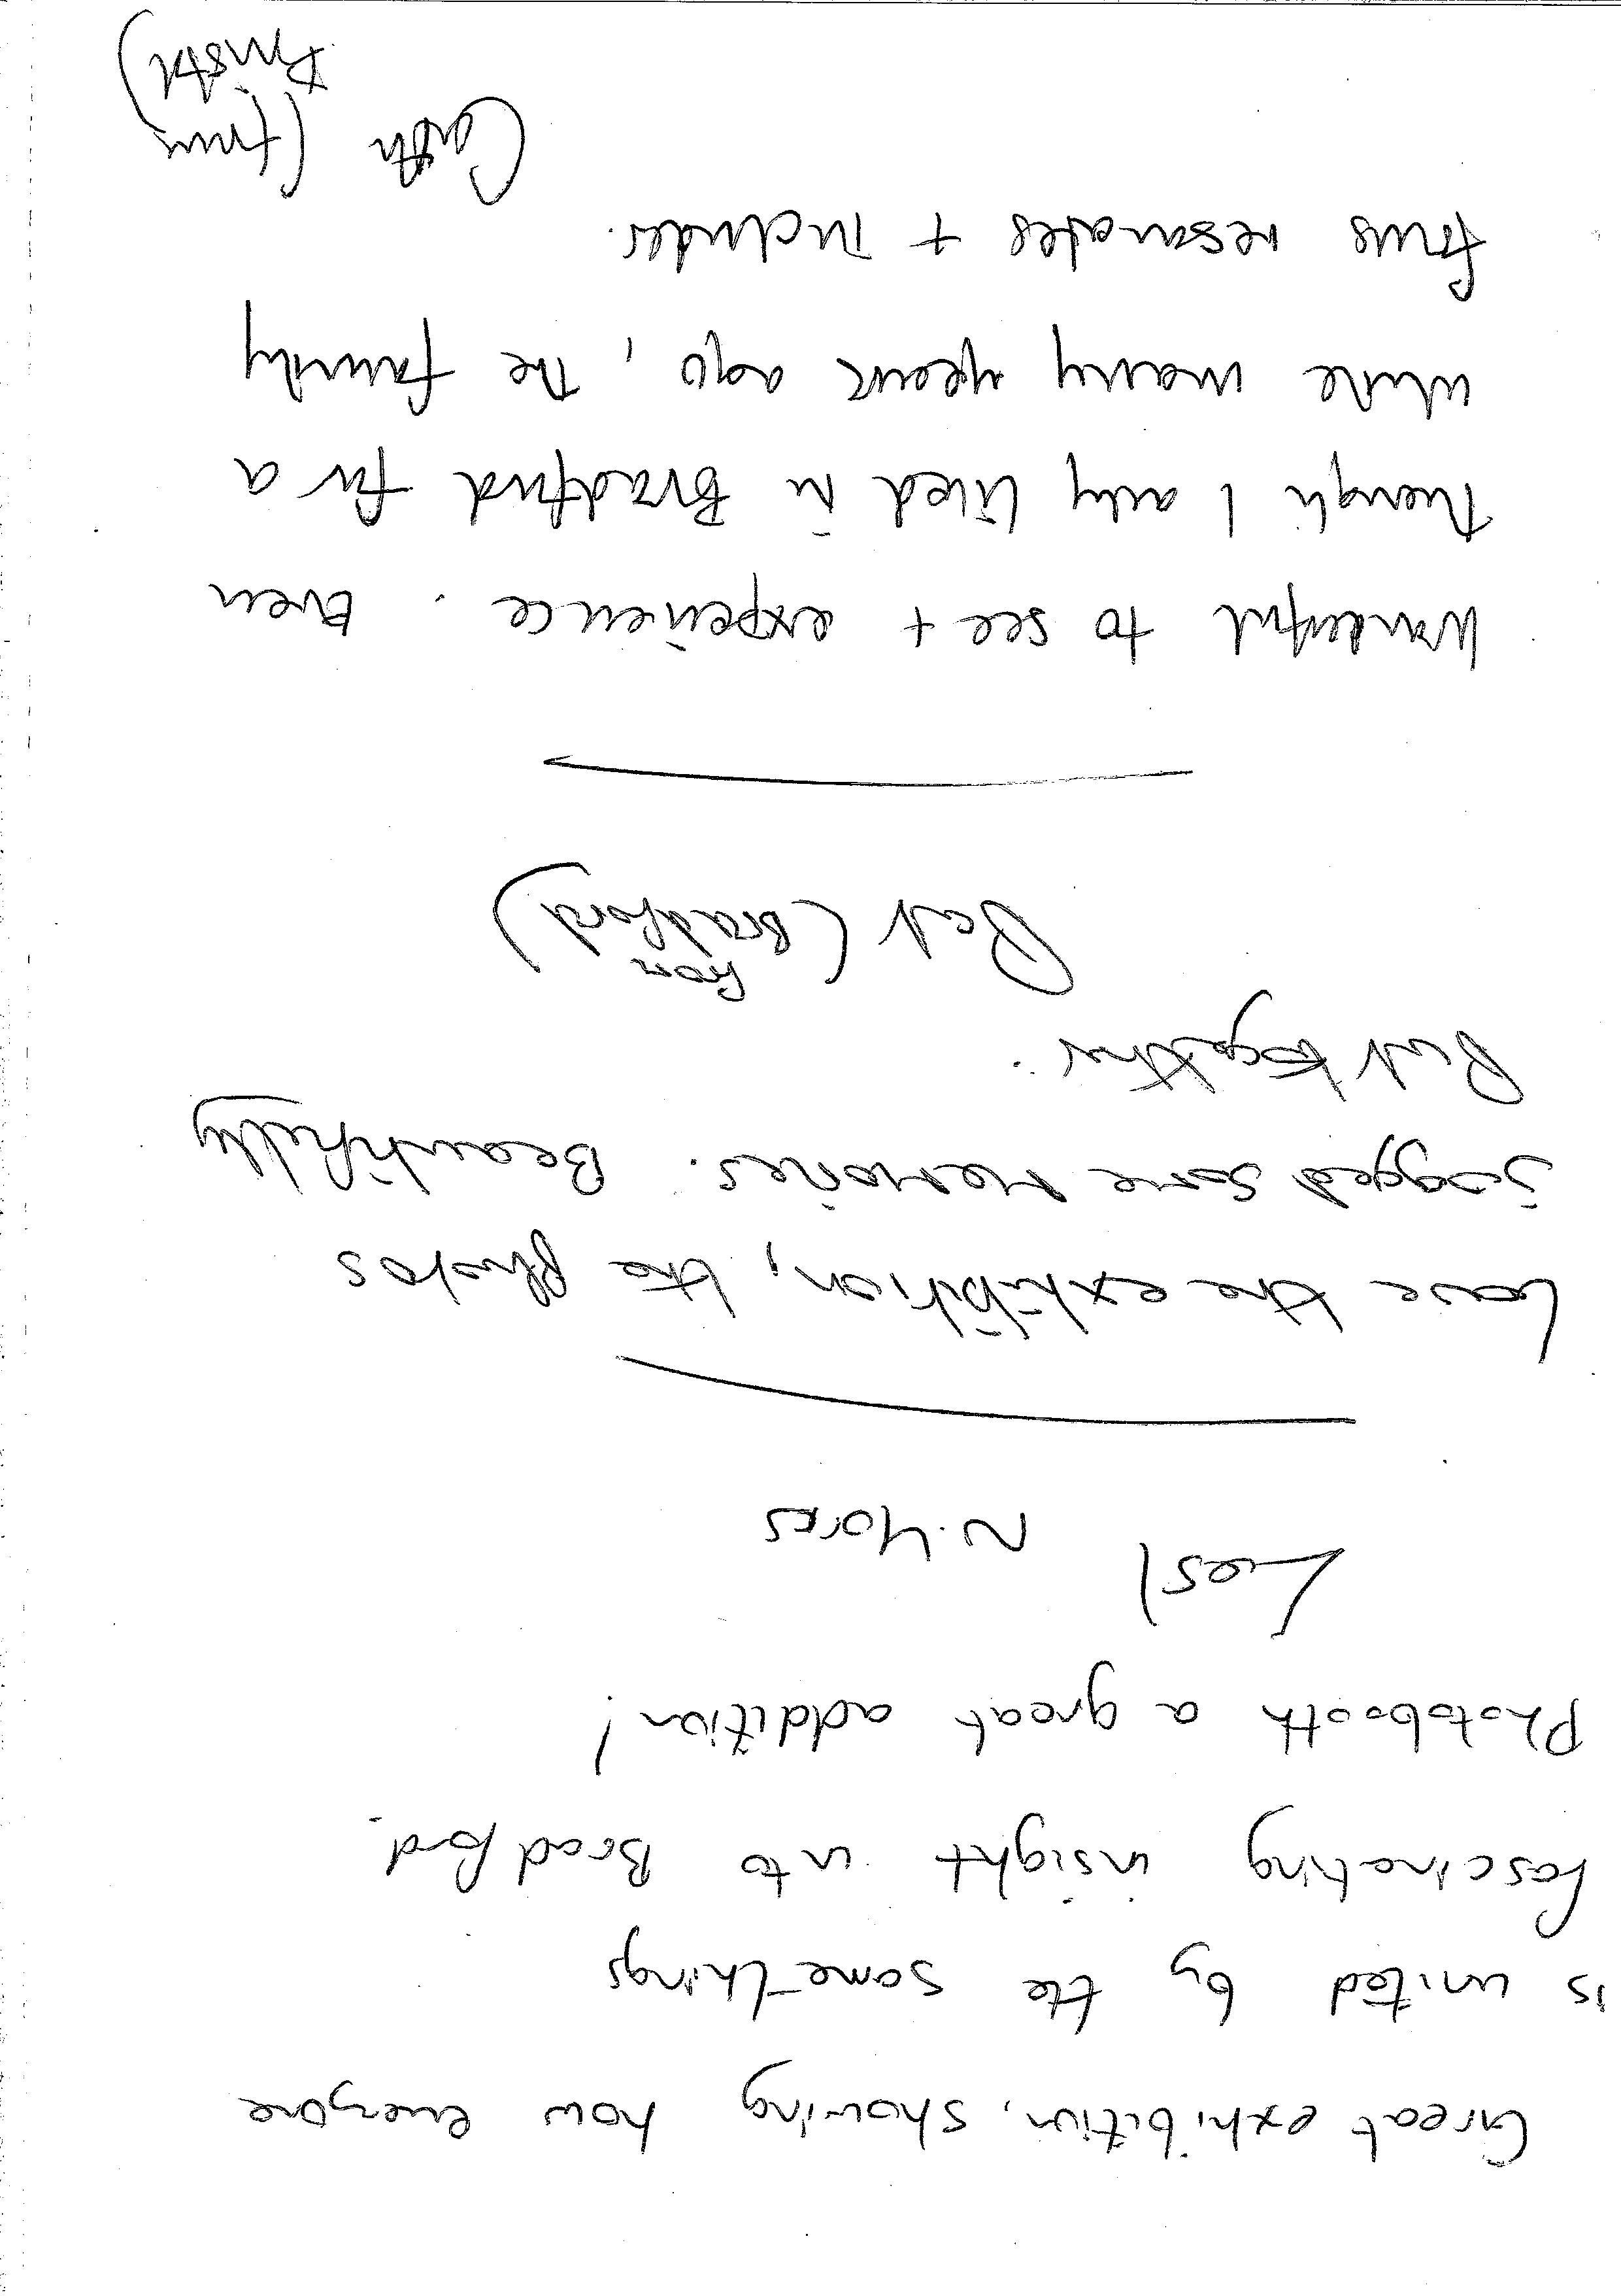 Great exhibition, showing how everyone
is united by the same things
fascinating insight into Bradford.
Photobooth a great addition!
Lesl
N. Yorks
Love the exhibition, the photos
jogged some memories. Beautifully
Put together.
(from Bradford)
Wonderful to see + experience. Even
though I only lived in Bradford for a
while many years ago, the family
focus resonates + includes.
Cath (from
Bristol)